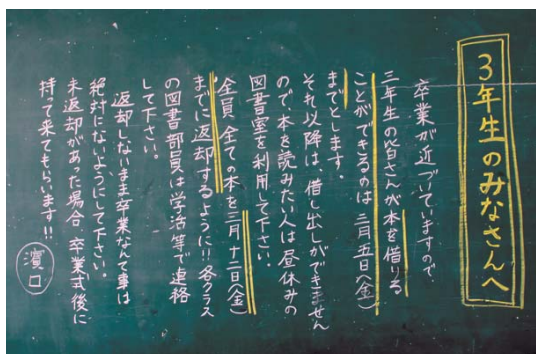 3年生のみなさんへ
卒業が近づいていますので
三年生の皆さんが本を借りる
ことができるのは三月五日(金)
までとします。
それ以降は借し出しができません
ので、本を読みたい人は昼休みの
図書室を利用して下さい。
全員、全ての本を三月十二日(金)
までに返却するように!!各クラス
の図書部員は学活等で連絡
して下さい。
返却しないまま卒業なんて事は
絶対にないようにして下さい。
未返却があった場合、卒業式後に
持って来てもらいます!!
濱口